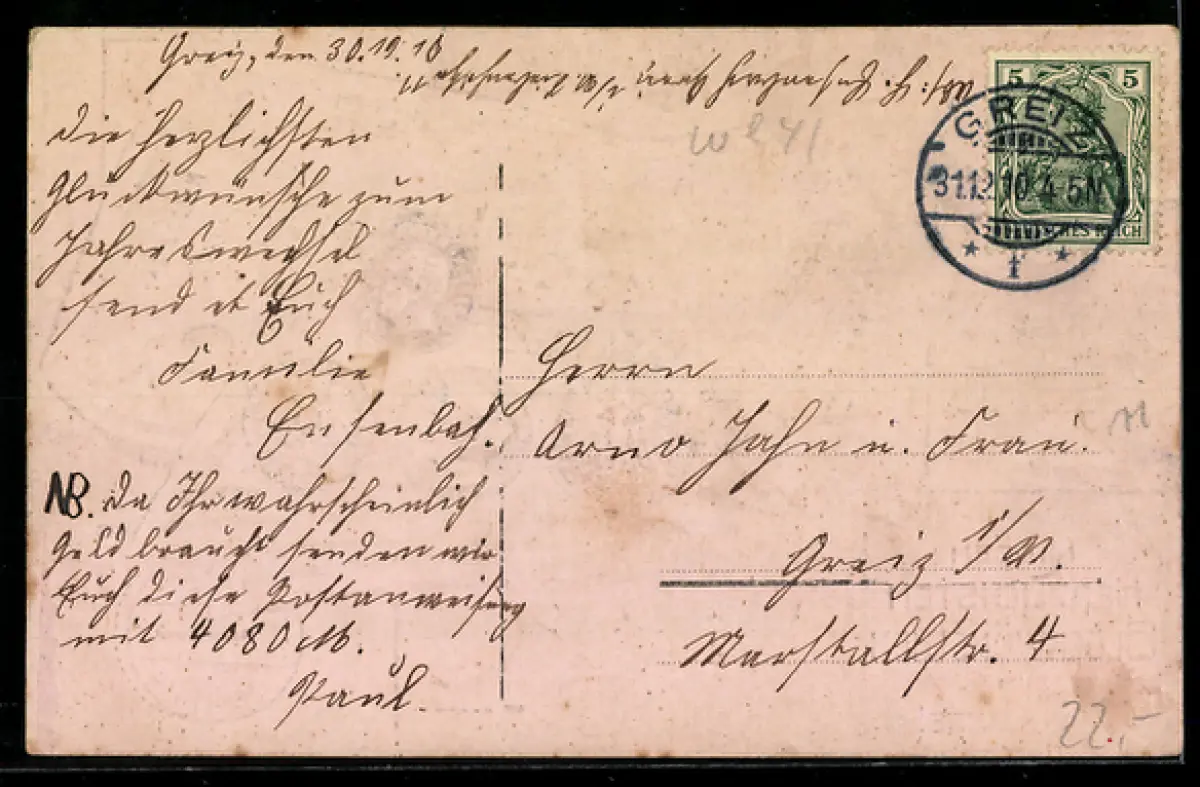 Greiz, den 30.12.10
Die herzlichsten
Glückwünsche zum
Jahreswechsel
sendet Euch
Familie
Eisenbach.
NB. Da Ihr wahrscheinlich
Geld braucht senden wir
Euch diese Postanweisung
mit 4080 M.
Paul.
Abs: H.
Greiz i/V.
5 5
GREIZ
31.12.10.4-5N
★ 1 ★
REICH
Herrn
Arno Jahn u. Frau.
Greiz i/V.
Marstallstr. 4
22,-